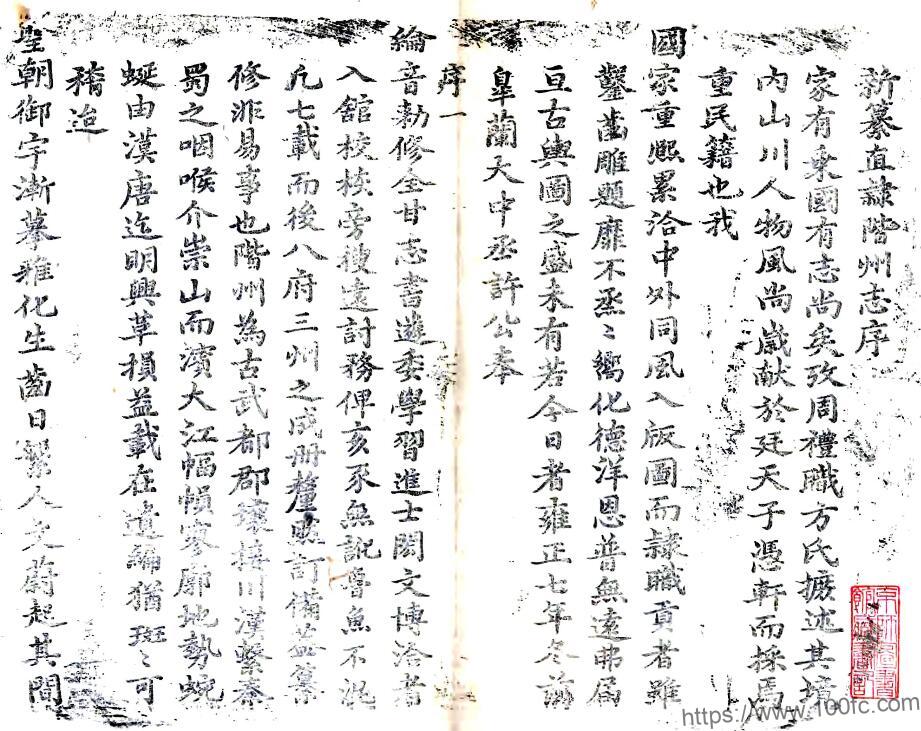 新纂直隸階州志序
家有乗國有志尚矣攷周禮職方氏摭述其境
內山川人物風尚嵗献於廷天子憑軒而採焉
重民籍也我
國家重熈累洽中外同風入版圖而隷職貢者雖
鑿齒雕題靡不丞〻嚮化德洋恩普無遠弗届
亘古輿圖之盛未有若今日者雍正七年冬
皐蘭大中丞許公奉
序一
綸音勅修全甘志書遊委學習進士閎文博洽者
入舘校核旁搜遠討務俾亥豕無訛魯魚不混
凢七載而後八府三州之成册釐然訂備葢纂
修非易事也階州為古武都郡壤接川漢繫秦
蜀之咽喉介崇山而濱大江幅幀寥廓地勢蜿
蜒由漢唐迄明興革損益載在遺編猶斑〻可
稽迨
聖朝御宇漸摹雅化生齒日繁人文蔚起其間
https://www.100fc.com